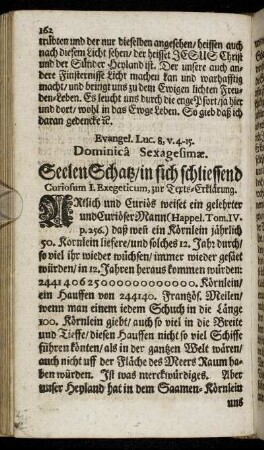 162
trübten und der nur dieselben angesehen/ heissen auch
nach diesem Licht sehen/ der heisset JESUS Christ
und der Sünder Heyland ist. Der unsere auch an-
dere Finsternisse Licht machen kan und warhafftig
macht/ und bringt uns zu dem Ewigen lichten Freu-
den-Leben. Es leucht uns durch die enge Pfort/ ja hier
und dort/ wohl in das Ewge Leben. So gieb daß ich
daran gedencke ꝛc.
Evangel. Luc. 8, v. 4-15.
Dominicâ Sexagesimæ.
Seelen Schatz/ in sich schliessend
Curiosum I. Exegeticum, zur Texts-Erklärung.
ARtlich und Curiös weiset ein gelehrter
und Curiöser Mann (Happel. Tom. IV.
p. 256.) daß weñ ein Körnlein jährlich
50. Körnlein liefere/ und solches 12. Jahr durch/
so viel ihr wieder wüchsen/ immer wieder gesäet
würden/ in 12. Jahren heraus kommen würden:
2441406250000000000000. Körnlein/
ein Hauffen von 244140. Französ. Meilen/
wenn man einem iedem Schuch in die Länge
100. Körnlein giebt/ auch so viel in die Breite
und Tieffe/ diesen Hauffen nicht so viel Schiffe
führen könten/ als in der gantzen Welt wären/
auch nicht uff der Fläche des Meers Raum ha-
ben würden. Ist was merckwürdiges. Aber
unser Heyland hat in dem Saamen-Körnlein
uns